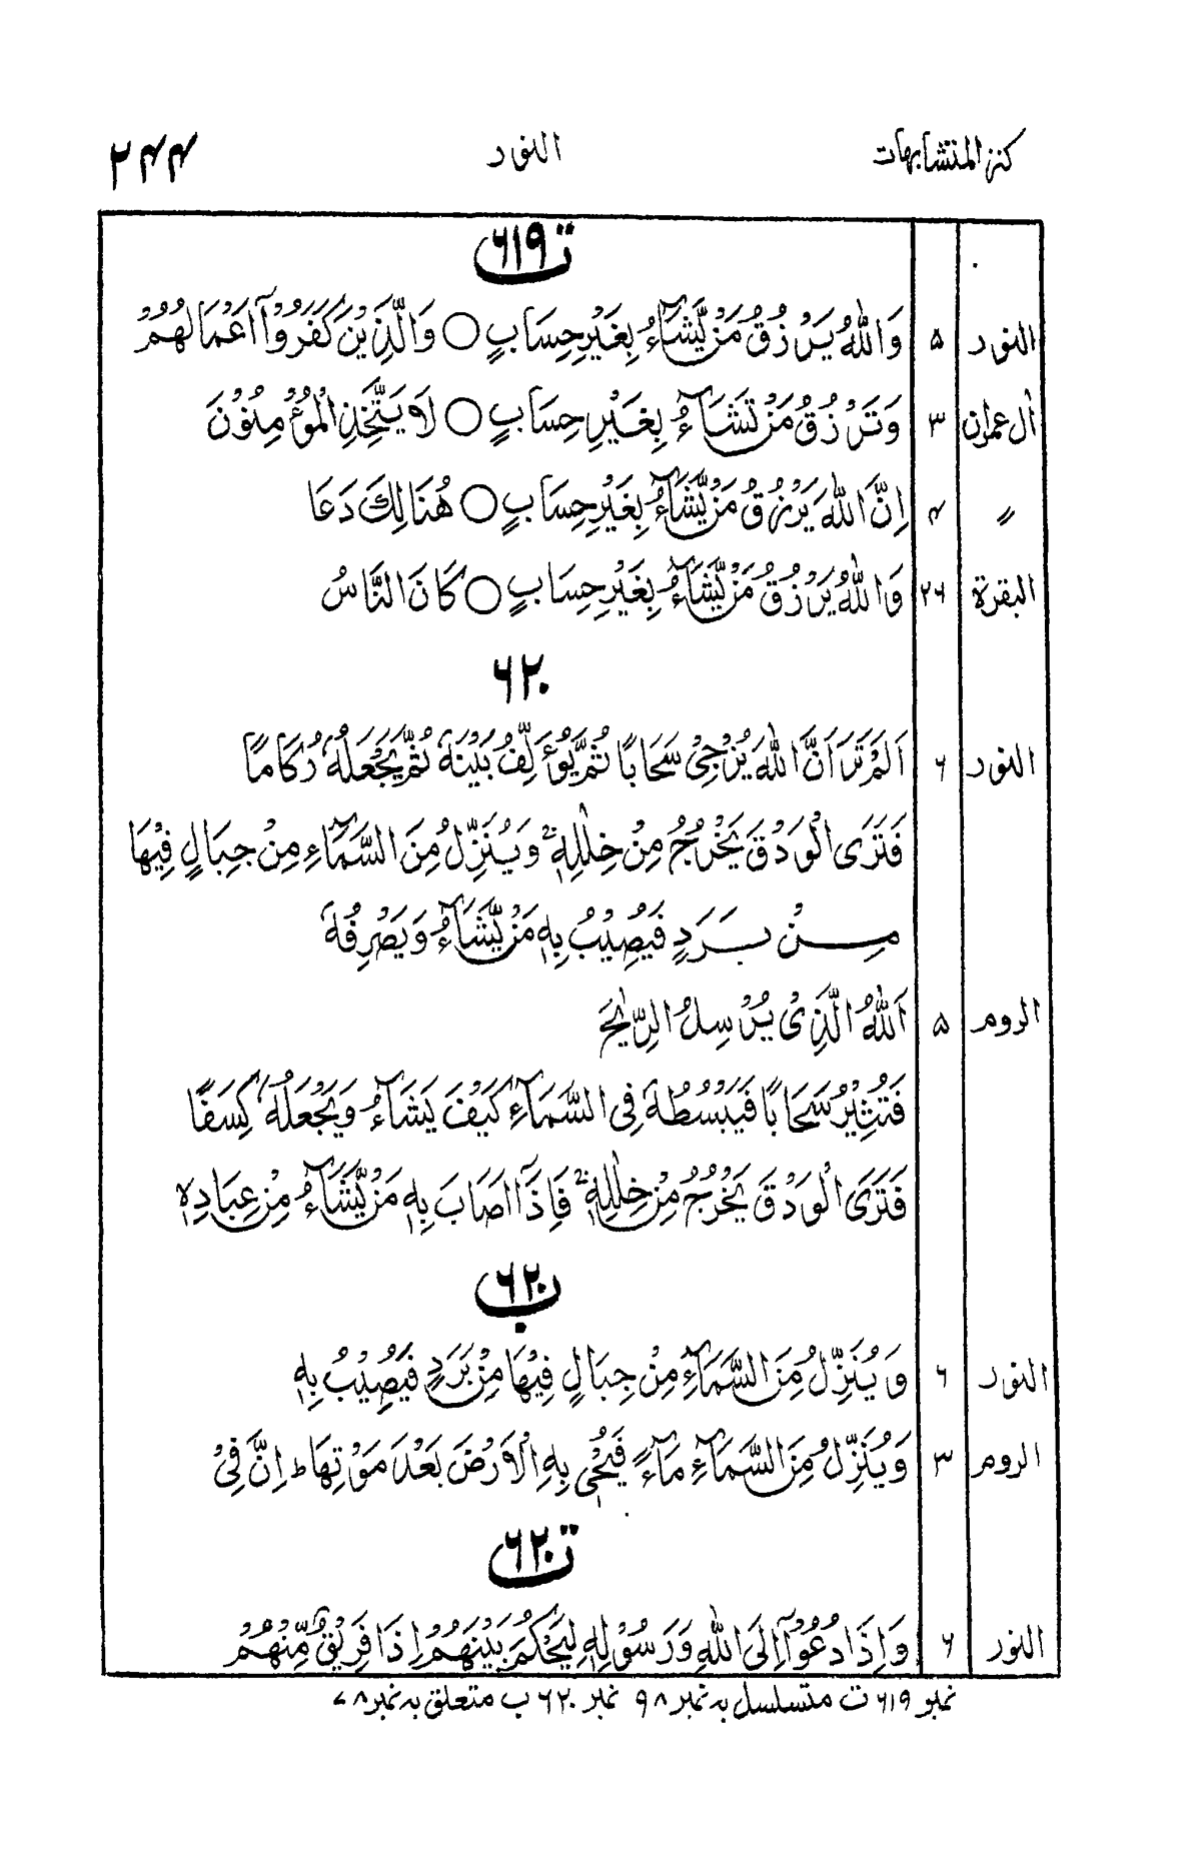 كنز المتشابهات النور ۲۴۴
۶۱۹ ت
النور ۵ وَاللّٰهُ يَرْزُقُ مَنْ يَّشَآءُ بِغَيْرِ حِسَابٍ ○ وَالَّذِيْنَ كَفَرُوْۤا اَعْمَالُهُمْ
اٰل عمران ۳ وَتَرْزُقُ مَنْ تَشَآءُ بِغَيْرِ حِسَابٍ ○ لَا يَتَّخِذِ الْمُؤْمِنُوْنَ
〃 ۴ اِنَّ اللّٰهَ يَرْزُقُ مَنْ يَّشَآءُ بِغَيْرِ حِسَابٍ ○ هُنَالِكَ دَعَا
البقرة ۲۶ وَاللّٰهُ يَرْزُقُ مَنْ يَّشَآءُ بِغَيْرِ حِسَابٍ ○ كَانَ النَّاسُ
۶۲۰
النور ۶ اَلَمْ تَرَ اَنَّ اللّٰهَ يُزْجِىْ سَحَابًا ثُمَّ يُؤَلِّفُ بَيْنَهٗ ثُمَّ يَجْعَلُهٗ رُكَامًا
فَتَرَى الْوَدْقَ يَخْرُجُ مِنْ خِلٰلِهٖ ۚ وَيُنَزِّلُ مِنَ السَّمَآءِ مِنْ جِبَالٍ فِيْهَا
مِنْۢ بَرَدٍ فَيُصِيْبُ بِهٖ مَنْ يَّشَآءُ وَيَصْرِفُهٗ
الروم ۵ اَللّٰهُ الَّذِىْ يُرْسِلُ الرِّيٰحَ
فَتُثِيْرُ سَحَابًا فَيَبْسُطُهٗ فِى السَّمَآءِ كَيْفَ يَشَآءُ وَيَجْعَلُهٗ كِسَفًا
فَتَرَى الْوَدْقَ يَخْرُجُ مِنْ خِلٰلِهٖ ۚ فَاِذَاۤ اَصَابَ بِهٖ مَنْ يَّشَآءُ مِنْ عِبَادِهٖۤ
۶۲۰ ب
النور ۶ وَيُنَزِّلُ مِنَ السَّمَآءِ مِنْ جِبَالٍ فِيْهَا مِنْۢ بَرَدٍ فَيُصِيْبُ بِهٖ
الروم ۳ وَيُنَزِّلُ مِنَ السَّمَآءِ مَآءً فَيُحْىٖ بِهِ الْاَرْضَ بَعْدَ مَوْتِهَا ؕ اِنَّ فِىْ
۶۲۰ ت
النور ۶ وَاِذَا دُعُوْۤا اِلَى اللّٰهِ وَرَسُوْلِهٖ لِيَحْكُمَ بَيْنَهُمْ اِذَا فَرِيْقٌ مِّنْهُمْ
نمبر ۶۱۹ ت متسلسل به نمبر ۹۸ نمبر ۶۲۰ ب متعلق به نمبر ۷۸